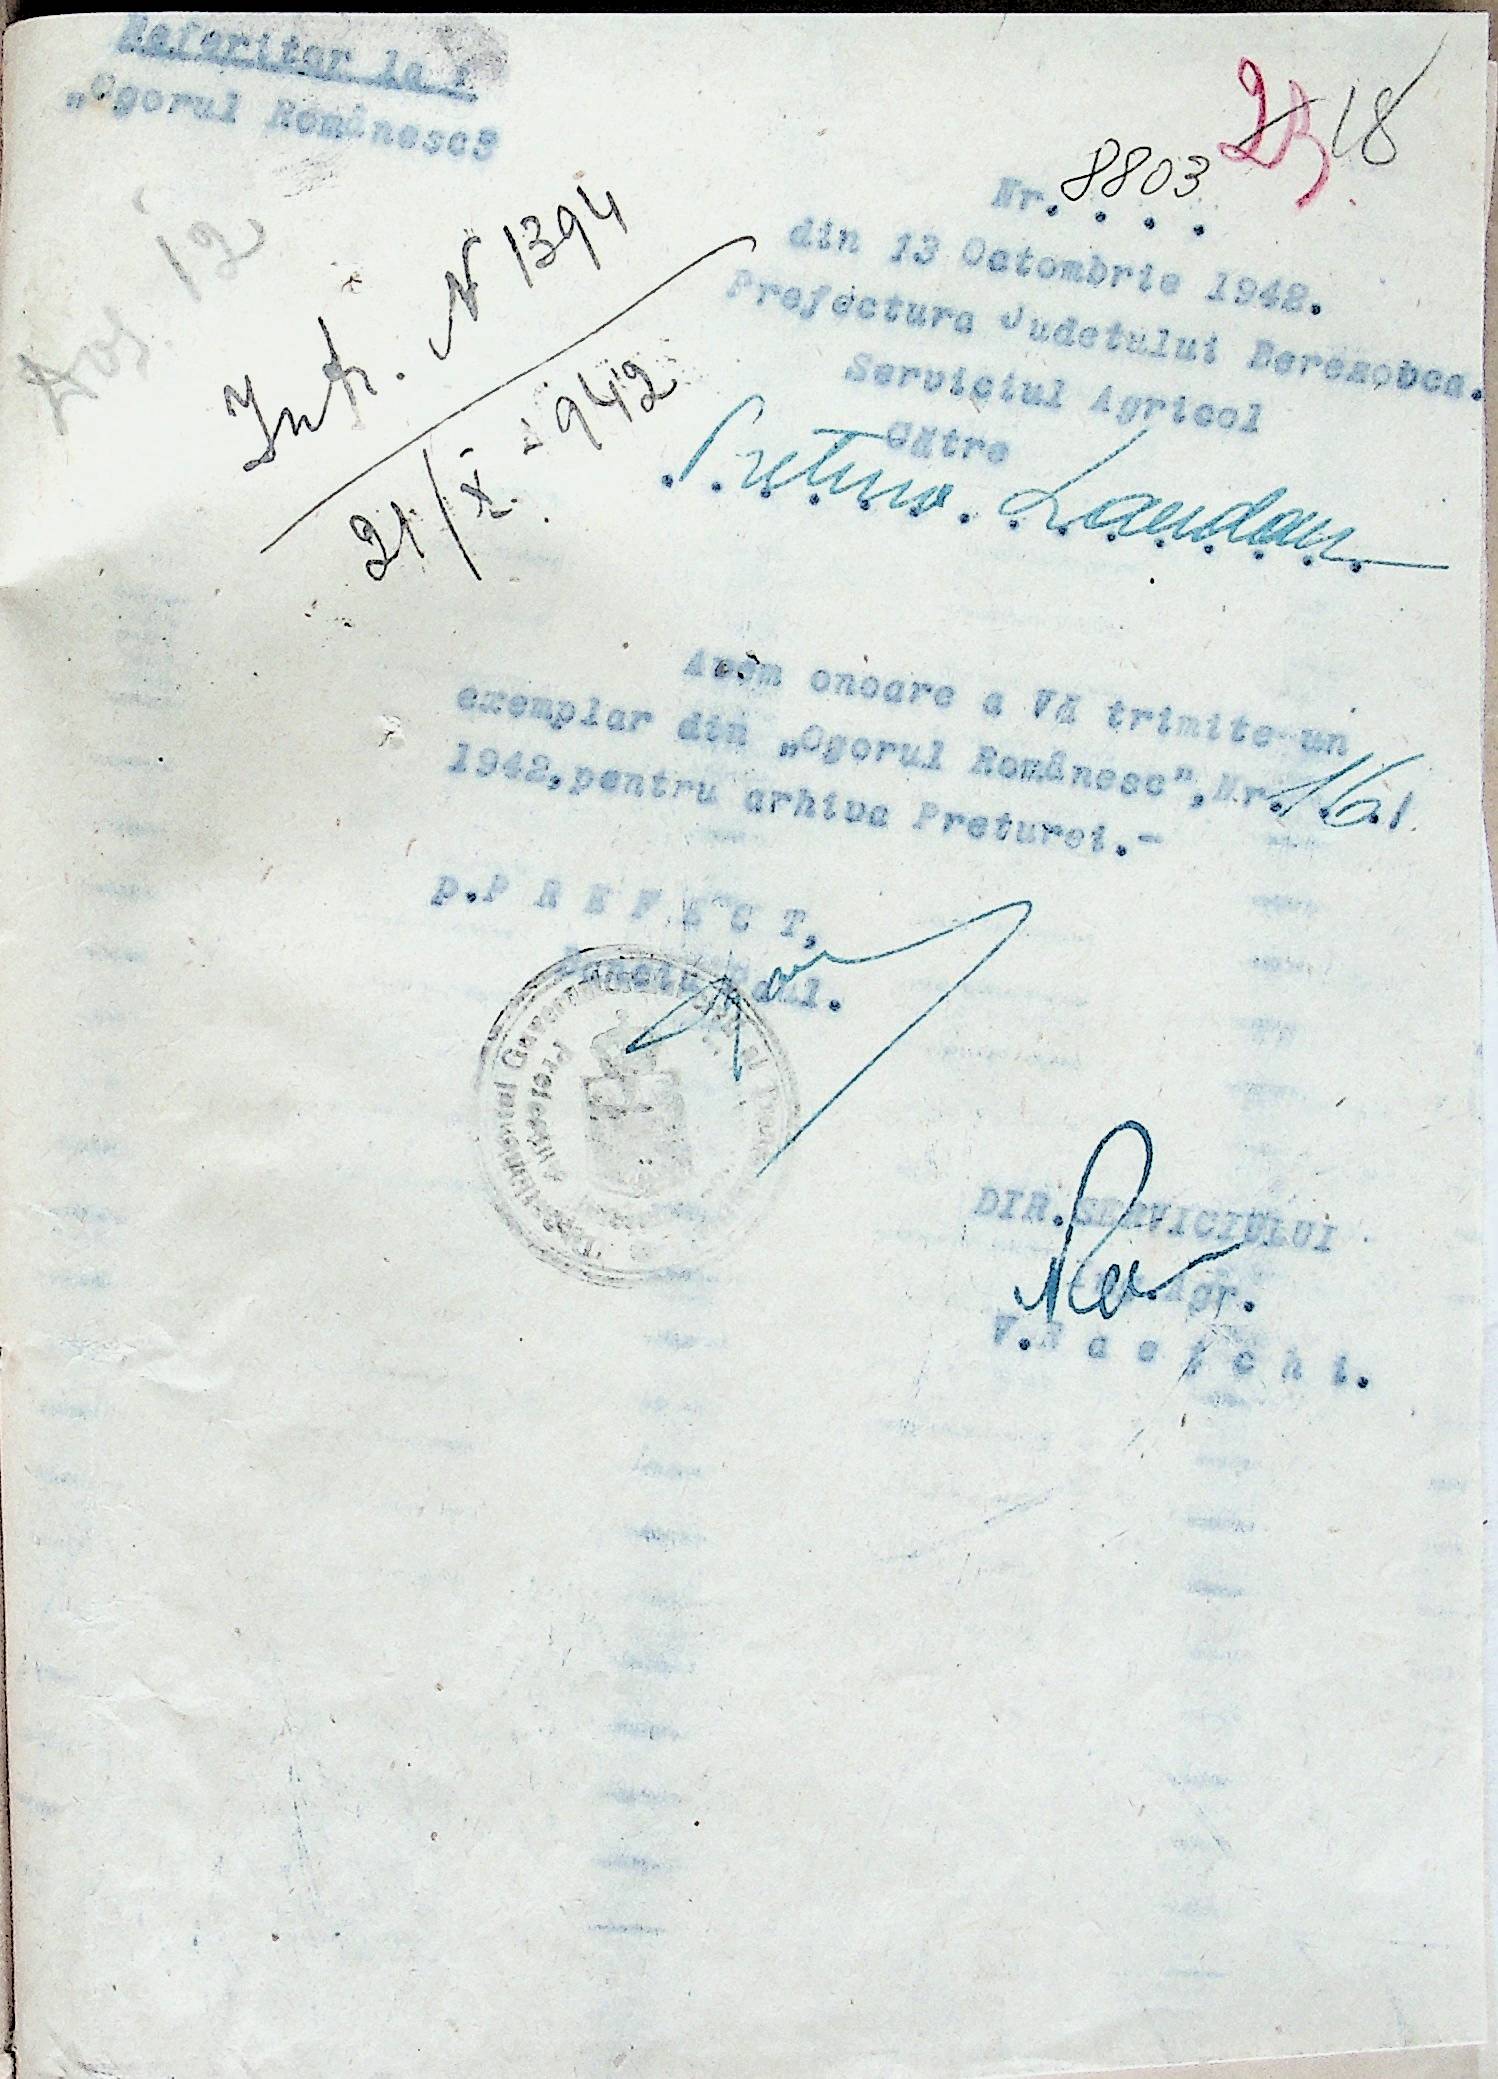 Referitor la :
„Ogorul Românesc"
23 18
Nr. 8803
din 13 Octombrie 1942.
Prefectura Judetului Berezovca.
Serviciul Agricol
Către
Pretura Landau
Dos. 12
Intr. N 1394
21/X - 942
Avem onoare a Vă trimite un
exemplar din „Ogorul Românesc", Nr. 16.
1942, pentru arhiva Preturei.-
p.P R E F E C T,
DIR.SERVICIULUI
Agr.
Guvernământul
Prefectura